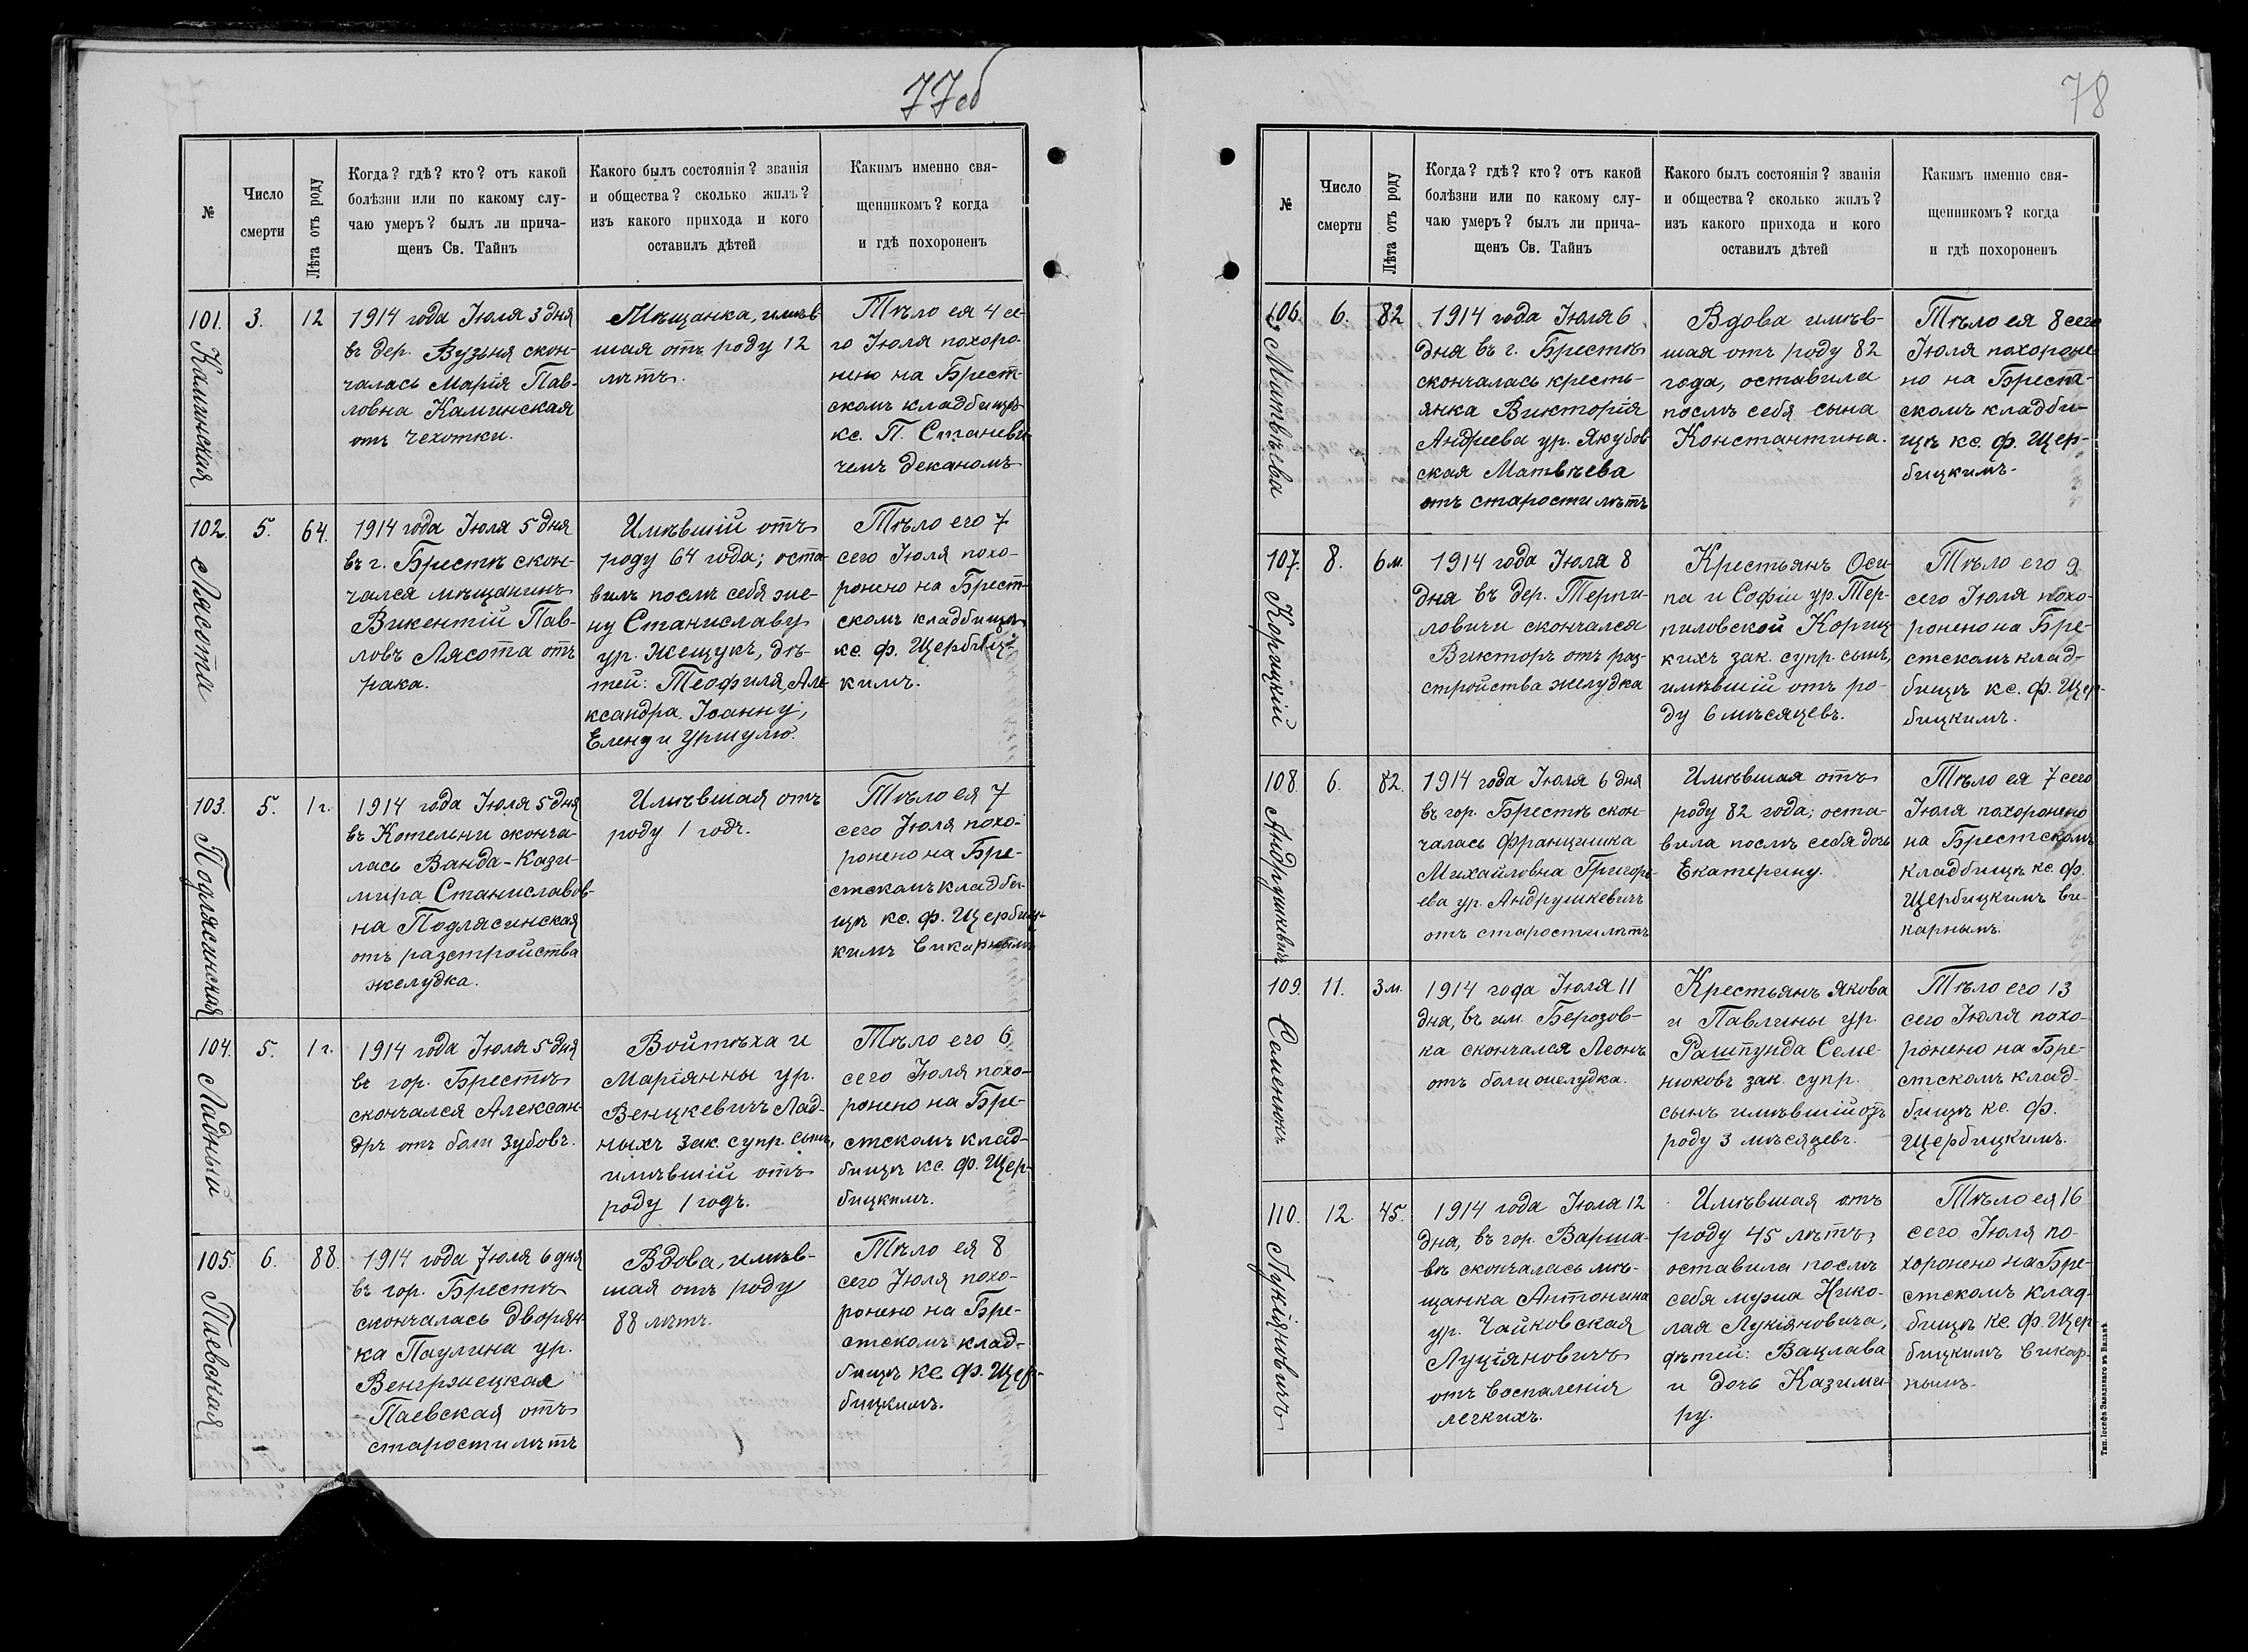 77об
№
Число
смерти
Лѣта отъ роду
Когда? гдѣ? кто? отъ какой
болѣзни или по какому слу-
чаю умеръ? былъ ли прича-
щенъ Св. Тайнъ
Какого былъ состоянія? званія
и общества? сколько жилъ?
изъ какого прихода и кого
оставилъ дѣтей
Какимъ именно свя-
щенникомъ? когда
и гдѣ похороненъ
101.
Каминская
3.
12
1914 года Іюля 3 дня
въ дер. Вузьня скон-
чалась Марія Пав-
ловна Каминская
отъ чехотки.
Мѣщанка, имѣв-
шая отъ роду 12
лѣтъ.
Тѣло ея 4 се-
го Іюля похоро-
нено на Брест-
скомъ кладбищѣ
кс. П. Станеви-
чемъ деканомъ
102.
Лясота
5.
64.
1914 года Іюля 5 дня
въ г. Брестѣ скон-
чался мѣщанинъ
Викентій Пав-
ловъ Лясота отъ
рака.
Имѣвшій отъ
роду 64 года; оста-
вилъ послѣ себя же-
ну Станиславу
ур. Жещукъ, дѣ-
тей: Теофиля, Але-
ксандра, Іоанну,
Елену и Уршулю.
Тѣло его 7
сего Іюля похо-
ронено на Брест-
скомъ кладбищѣ
кс. ф. Щербиц-
кимъ.
103.
Подлясинская
5.
1 г.
1914 года Іюля 5 дня
въ Котельни сконча-
лась Ванда-Кази-
мира Станиславов-
на Подлясинская
отъ разстройства
желудка.
Имѣвшая отъ
роду 1 годъ.
Тѣло ея 7
сего Іюля похо-
ронено на Бре-
стскомъ кладби-
щѣ кс. ф. Щербиц-
кимъ викарнымъ
104.
Ладный
5.
1 г.
1914 года Іюля 5 дня
въ гор. Брестѣ
скончался Алексан-
дръ отъ боли зубовъ.
Войтѣха и
Маріянны ур.
Венцкевичъ Лад-
ныхъ зак. супр. сынъ,
имѣвшій отъ
роду 1 годъ.
Тѣло его 6
сего Іюля похо-
ронено на Бре-
стскомъ клад-
бищѣ кс. ф. Щер-
бицкимъ.
105.
Паевская
6.
88.
1914 года Іюля 6 дня
въ гор. Брестѣ
скончалась дворян-
ка Паулина ур.
Венгржецкая
Паевская отъ
старости лѣтъ
Вдова, имѣв-
шая отъ роду
88 лѣтъ.
Тѣло ея 8
сего Іюля похо-
ронено на Бре-
стскомъ клад-
бищѣ кс. ф. Щер-
бицкимъ.
78
№
Число
смерти
Лѣта отъ роду
Когда? гдѣ? кто? отъ какой
болѣзни или по какому слу-
чаю умеръ? былъ ли прича-
щенъ Св. Тайнъ
Какого былъ состоянія? званія
и общества? сколько жилъ?
изъ какого прихода и кого
оставилъ дѣтей
Какимъ именно свя-
щенникомъ? когда
и гдѣ похороненъ
106.
Матвѣева
6.
82
1914 года Іюля 6
дня въ г. Брестѣ
скончалась кресть-
янка Викторія
Андреева ур. Якубов
ская Матвѣева
отъ старости лѣтъ
Вдова имѣв-
шая отъ роду 82
года, оставила
послѣ себя сына
Константина.
Тѣло ея 8 сего
Іюля похороне-
но на Брест-
скомъ кладби-
щѣ кс. ф. Щер-
бицкимъ.
107.
Корицкій
8.
6 м.
1914 года Іюля 8
дня въ дер. Терпи-
ловичи скончался
Викторъ отъ раз-
стройства желудка
Крестьянъ Оси-
па и Софіи ур. Тер-
пиловской Кориц
кихъ зак. супр. сынъ,
имѣвшій отъ ро-
ду 6 мѣсяцевъ.
Тѣло его 9
сего Іюля похо-
ронено на Бре-
стскомъ клад-
бищѣ кс. ф. Щер-
бицкимъ.
108
Андрушкевичъ
6.
82.
1914 года Іюля 6 дня
въ гор. Брестѣ скон-
чалась Францишка
Михайловна Григорь-
ева ур. Андрушкевичъ
отъ старости лѣтъ
Имѣвшая отъ
роду 82 года; оста-
вила послѣ себя дочь
Екатерину.
Тѣло ея 7 сего
Іюля похоронено
на Брестскомъ
кладбищѣ кс. ф.
Щербицкимъ ви-
карнымъ.
109.
Семенюкъ
11.
3 м.
1914 года Іюля 11
дня, въ им. Берозов-
ка скончался Леонъ
отъ боли желудка.
Крестьянъ Якова
и Павлины ур.
Рашпунда Семе-
нюковъ зак. супр.
сынъ имѣвшій отъ
роду 3 мѣсяцевъ.
Тѣло его 13
сего Іюля похо-
ронено на Бре-
стскомъ клад-
бищѣ кс. ф.
Щербицкимъ.
110.
Лукіяновичъ
12.
45.
1914 года Іюля 12
дня, въ гор. Варша-
вѣ скончалась мѣ-
щанка Антонина
ур. Чайковская
Луціяновичъ
отъ воспаленія
легкихъ.
Имѣвшая отъ
роду 45 лѣтъ,
оставила послѣ
себя мужа Нико-
лая Лукіяновича,
дѣтей: Вацлава
и дочь Казими-
ру.
Тѣло ея 16
сего Іюля по-
хоронено на Бре-
стскомъ клад-
бищѣ кс. ф. Щер
бицкимъ викар-
нымъ.
Тип. Іосифа Завадзкаго въ Вильнѣ